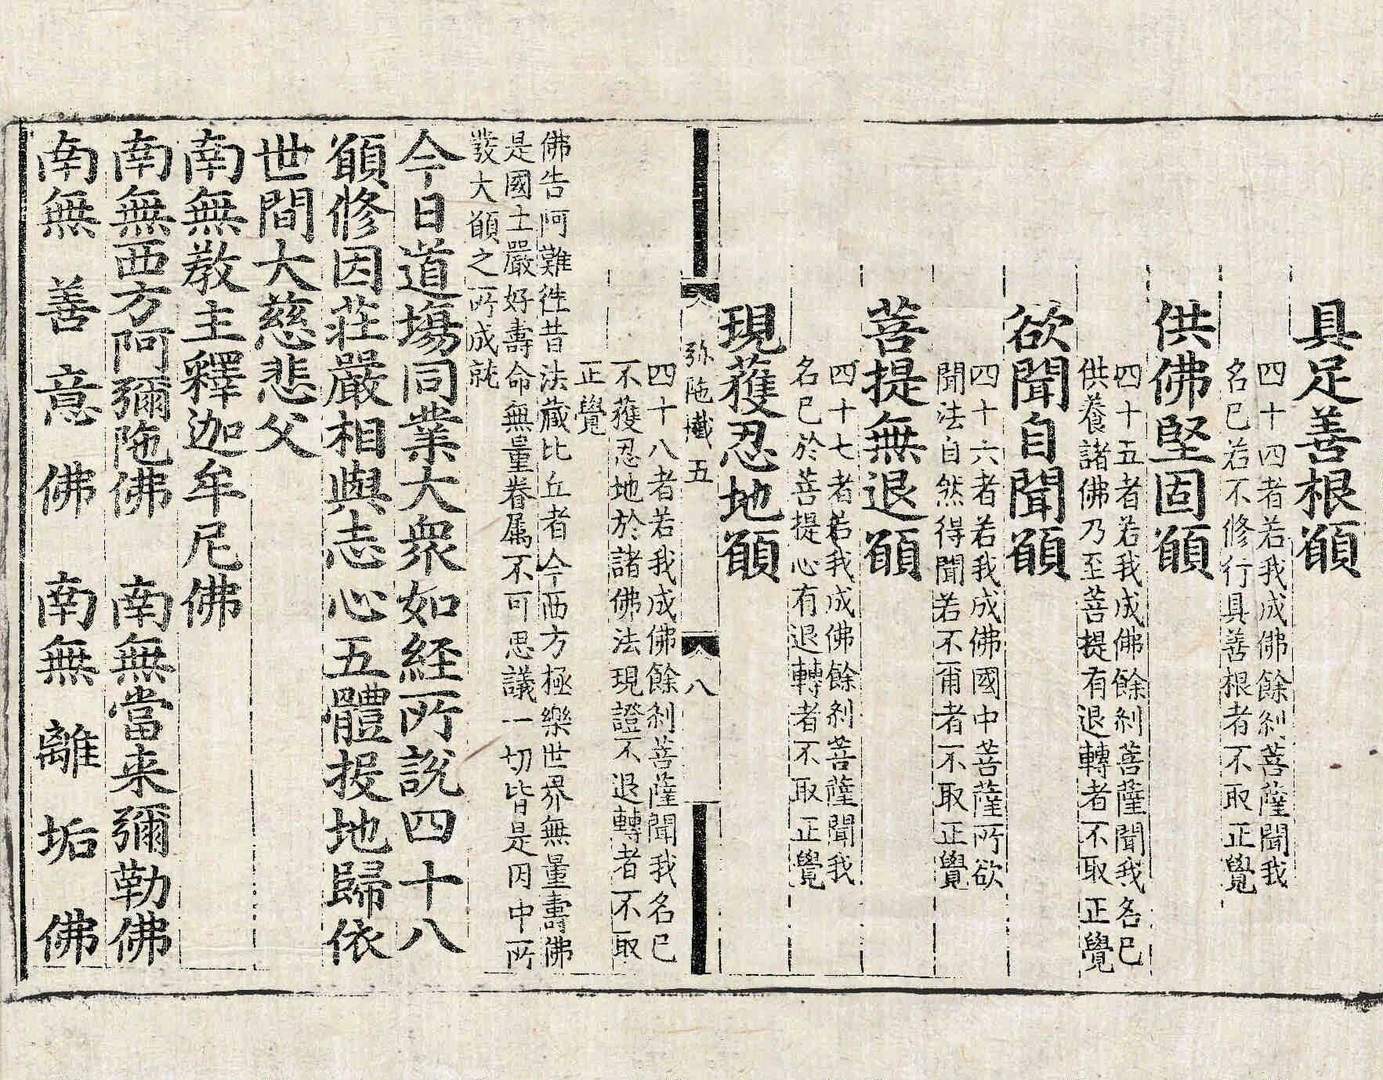 具足善根願
四十四者若我成佛餘刹菩薩聞我
名已若不修行具善根者不取正覺
供佛堅固願
四十五者若我成佛餘刹菩薩聞我名已
供養諸佛乃至菩提有退轉者不取正覺
欲聞自聞願
四十六者若我成佛國中菩薩所欲
聞法自然得聞若不甭者不取正覺
菩提無退願
四十七者若我成佛餘刹菩薩聞我
名已於菩提心有退轉者不取正覺
現蒦忍地願
四十八者若我成佛餘刹菩薩聞我名已
不蒦忍地於諸佛法現證不退轉者不取
正覺
弥陁懴五 八
佛告阿難徃昔法藏比丘者今西方極樂世界無量壽佛
是國土嚴好壽命無量眷属不可思議一切皆是因中所
發大願之所成就
今日道塲同業大衆如經所說四十八
願修因莊嚴相與志心五體投地歸依
世間大慈悲父
南無教主釋迦牟尼佛
南無西方阿彌陁佛 南無當来彌勒佛
南無善意佛 南無離垢佛